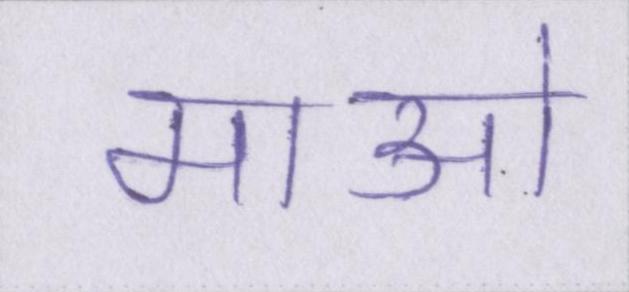 माओ